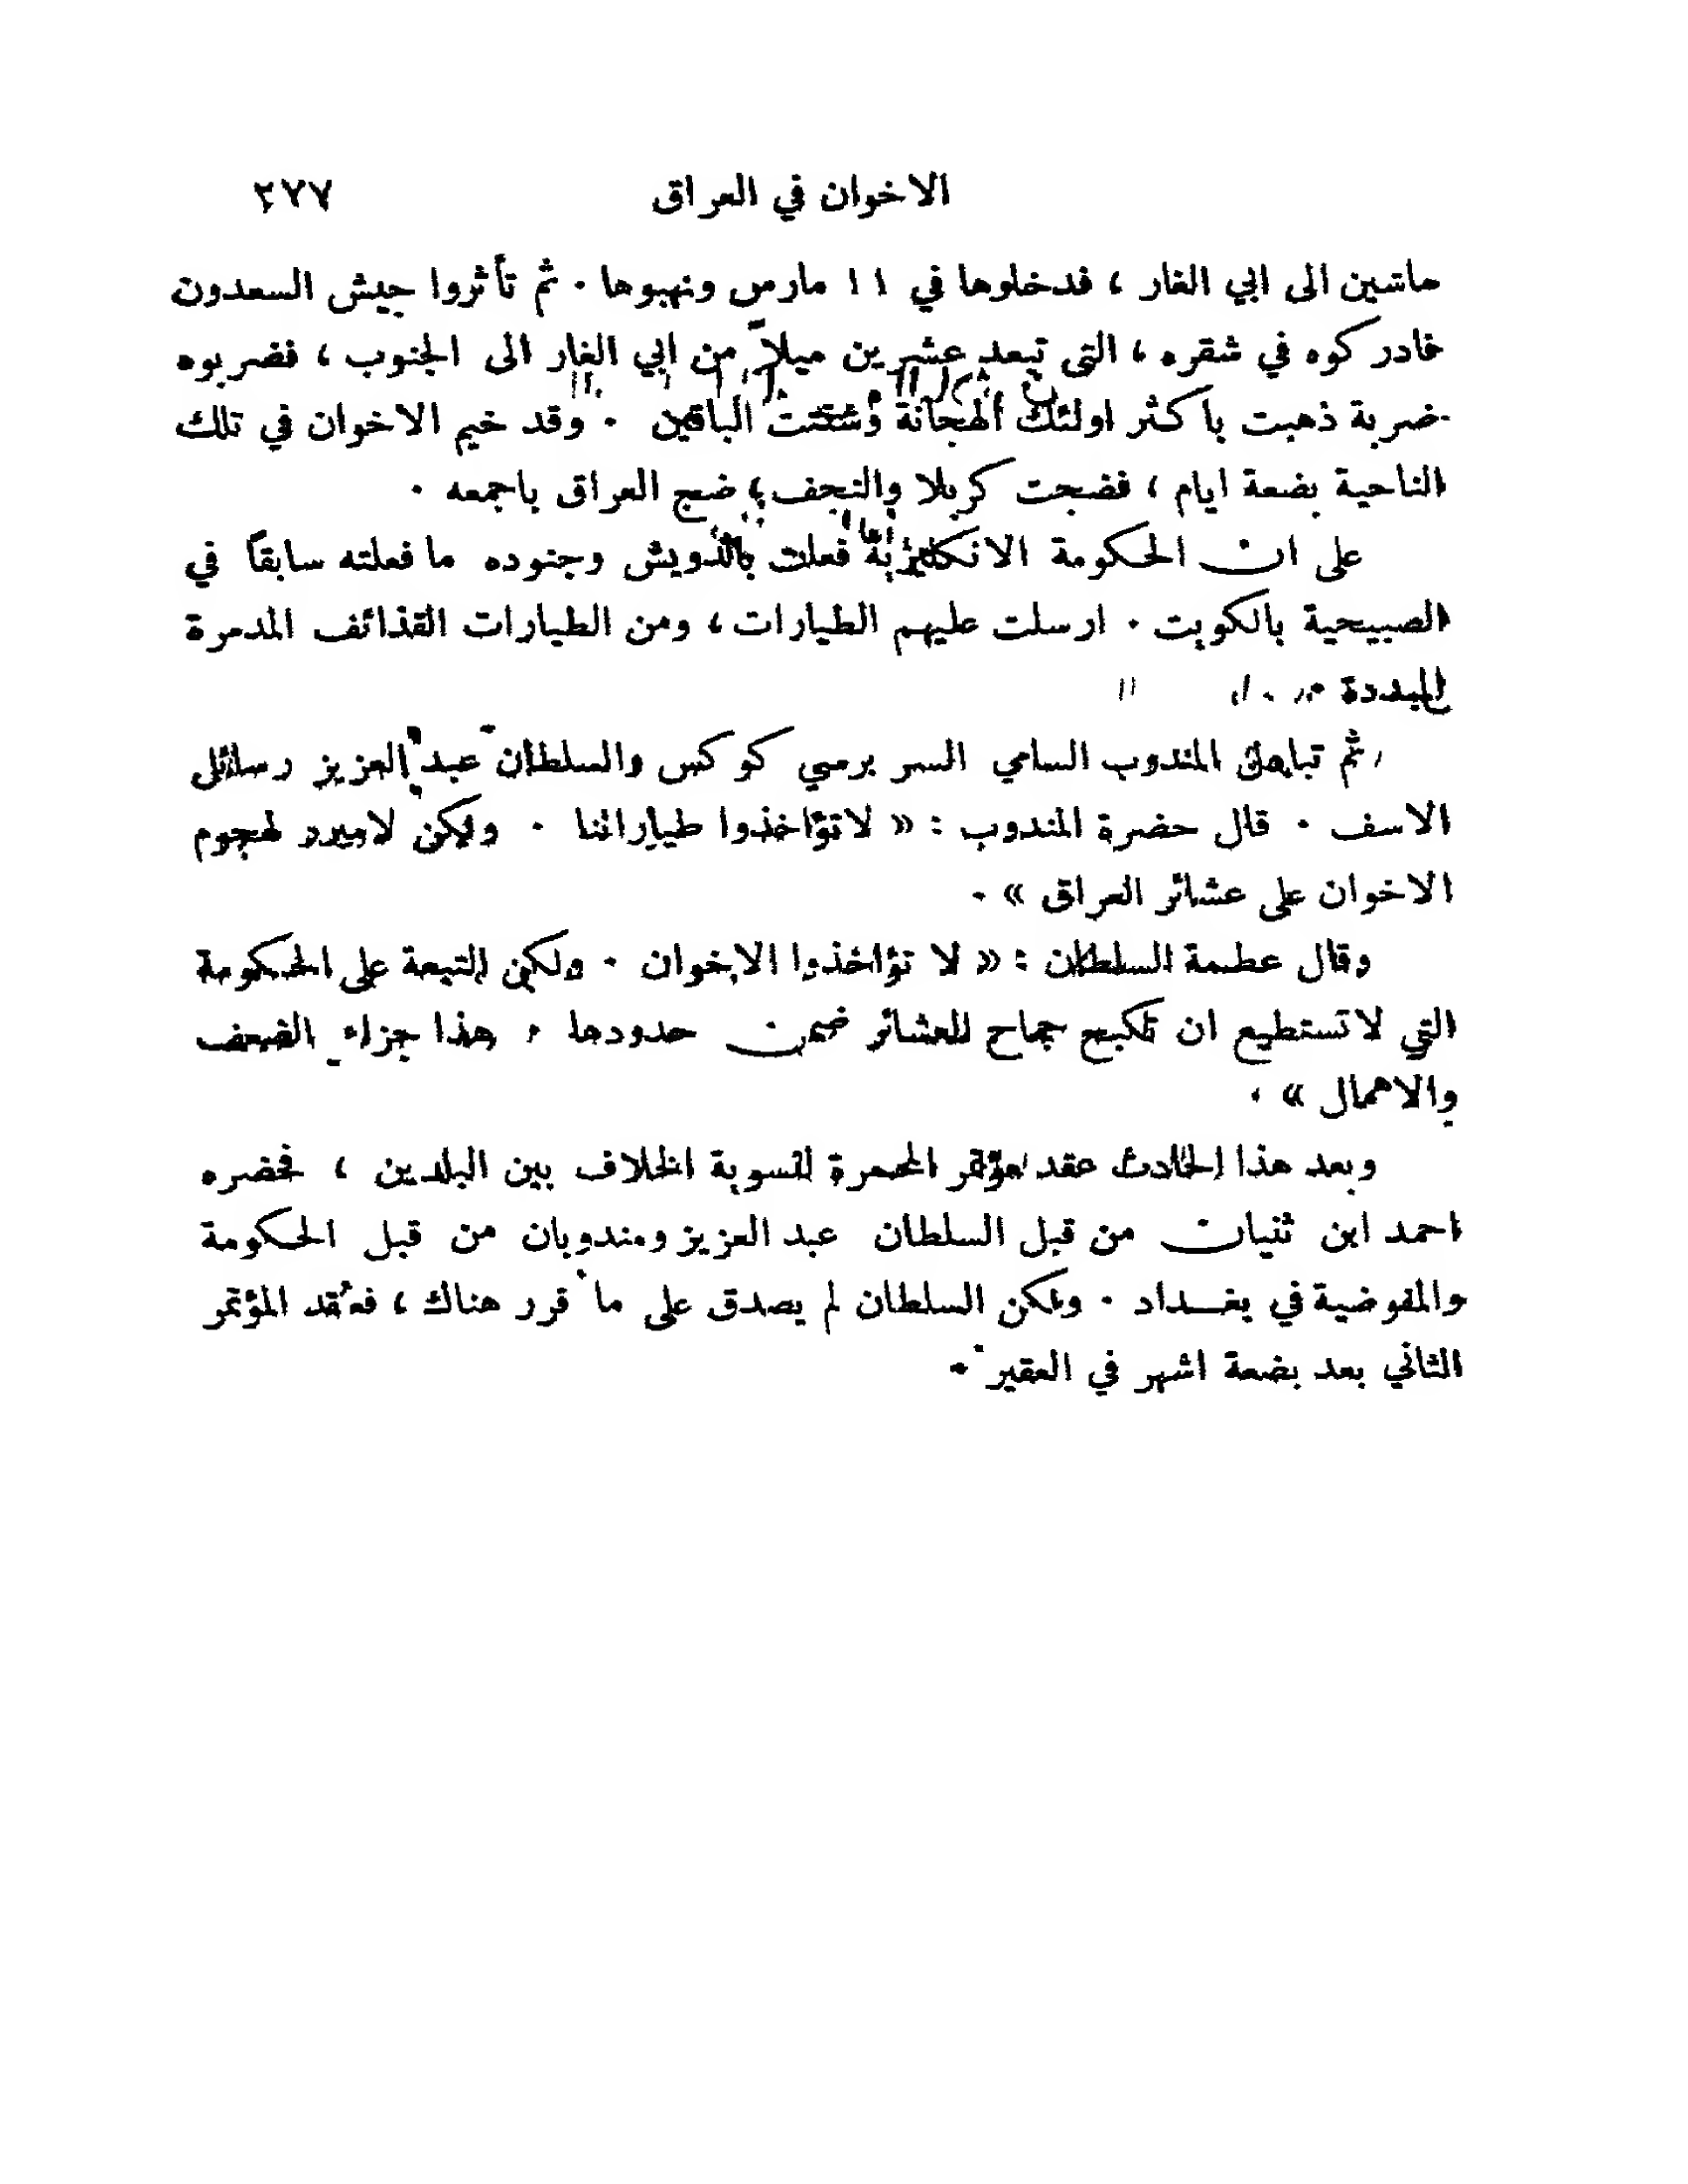 الاخوان في العراق ٢٧٧
ماشين الى ابي الغار ، فدخلوها في ١١ مارس ونهبوها . ثم تأثروا جيش السعدون
فادركوه في شقره ، التى تبعد عشرين ميلاً من ابي الغار الى الجنوب ، فضربوه
ضربة ذهبت باكثر اولئك الهجانة وشتتت الباقين . وقد خيم الاخوان في تلك
الناحية بضعة ايام ، فضجت كربلا والنجف ، ضج العراق باجمعه .
على ان الحكومة الانكليزية فعلت بالدويش وجنوده ما فعلته سابقاً في
الصبيحية بالكويت . ارسلت عليهم الطيارات ، ومن الطيارات القذائف المدمرة
المبددة
ثم تبادل المندوب السامي السر برسي كوكس والسلطان عبد العزيز رسائل
الاسف . قال حضرة المندوب : « لا تؤاخذوا طياراتنا . ولكن لا مبرر لهجوم
الاخوان على عشائر العراق » .
وقال عظمة السلطان : « لا تؤاخذوا الاخوان . ولكن التبعة على الحكومة
التي لا تستطيع ان تكبح جماح العشائر ضمن حدودها . هذا جزاء الضعف
والاهمال » .
وبعد هذا الحادث عقد مؤتمر المحمرة لتسوية الخلاف بين البلدين ، فحضره
احمد ابن ثنيان من قبل السلطان عبد العزيز ومندوبان من قبل الحكومة
والمفوضية في بغداد . ولكن السلطان لم يصدق على ما قرر هناك ، فعُقد المؤتمر
الثاني بعد بضعة اشهر في العقير .